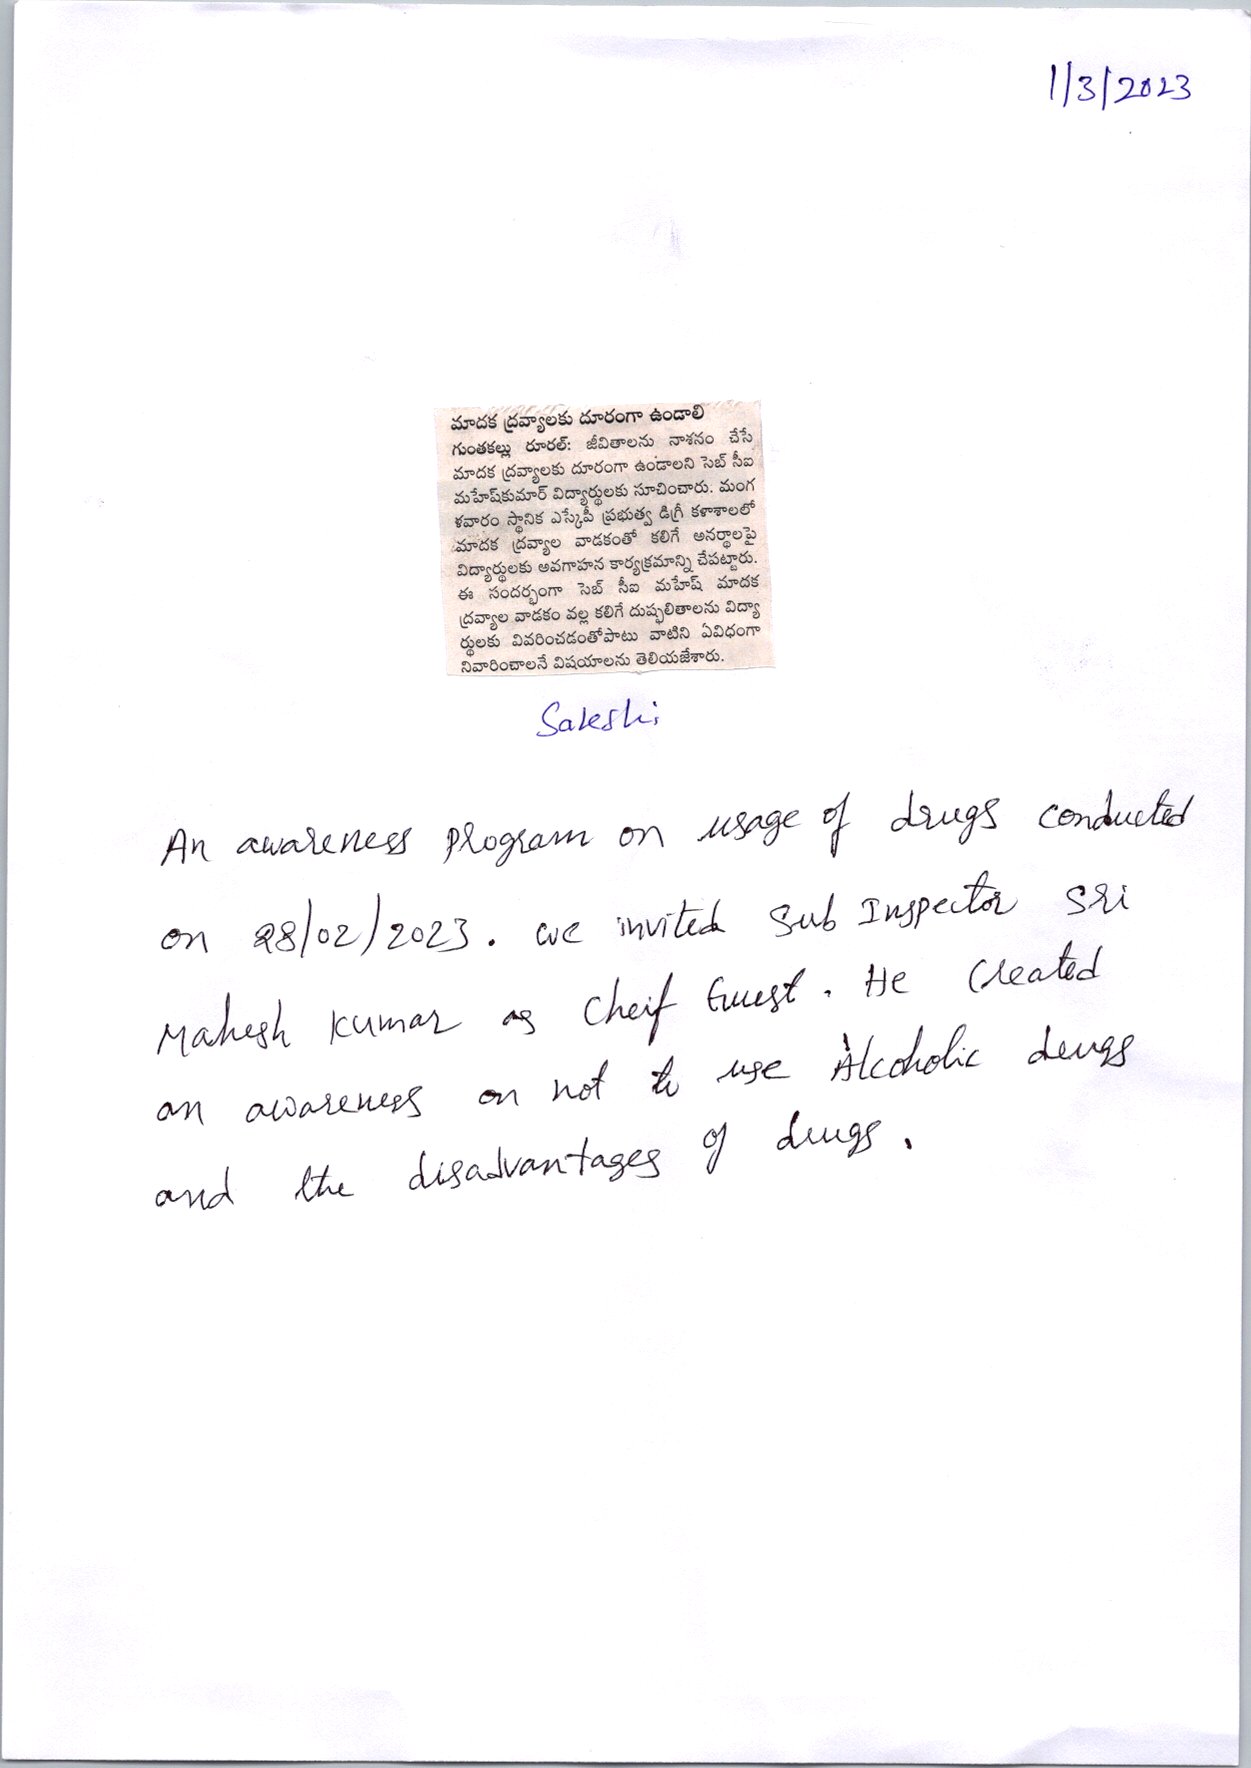 1/3/2023
మాదక ద్రవ్యాలకు దూరంగా ఉండాలి
గుంతకల్లు రూరల్: జీవితాలను నాశనం చేసే
మాదక ద్రవ్యాలకు దూరంగా ఉండాలని సెబ్ సీఐ
మహేష్‌కుమార్ విద్యార్థులకు సూచించారు. మంగ
ళవారం స్థానిక ఎస్కేపీ ప్రభుత్వ డిగ్రీ కళాశాలలో
మాదక ద్రవ్యాల వాడకంతో కలిగే అనర్థాలపై
విద్యార్థులకు అవగాహన కార్యక్రమాన్ని చేపట్టారు.
ఈ సందర్భంగా సెబ్ సీఐ మహేష్ మాదక
ద్రవ్యాల వాడకం వల్ల కలిగే దుష్ఫలితాలను విద్యా
ర్థులకు వివరించడంతోపాటు వాటిని ఏవిధంగా
నివారించాలనే విషయాలను తెలియజేశారు.
Sakshi
An awareness program on usage of drugs conducted
on 28/02/2023. we invited Sub Inspector Sri
Mahesh Kumar as Cheif Guest. He Created
an awareness on not to use Alcoholic drugs
and the disadvantages of drugs.